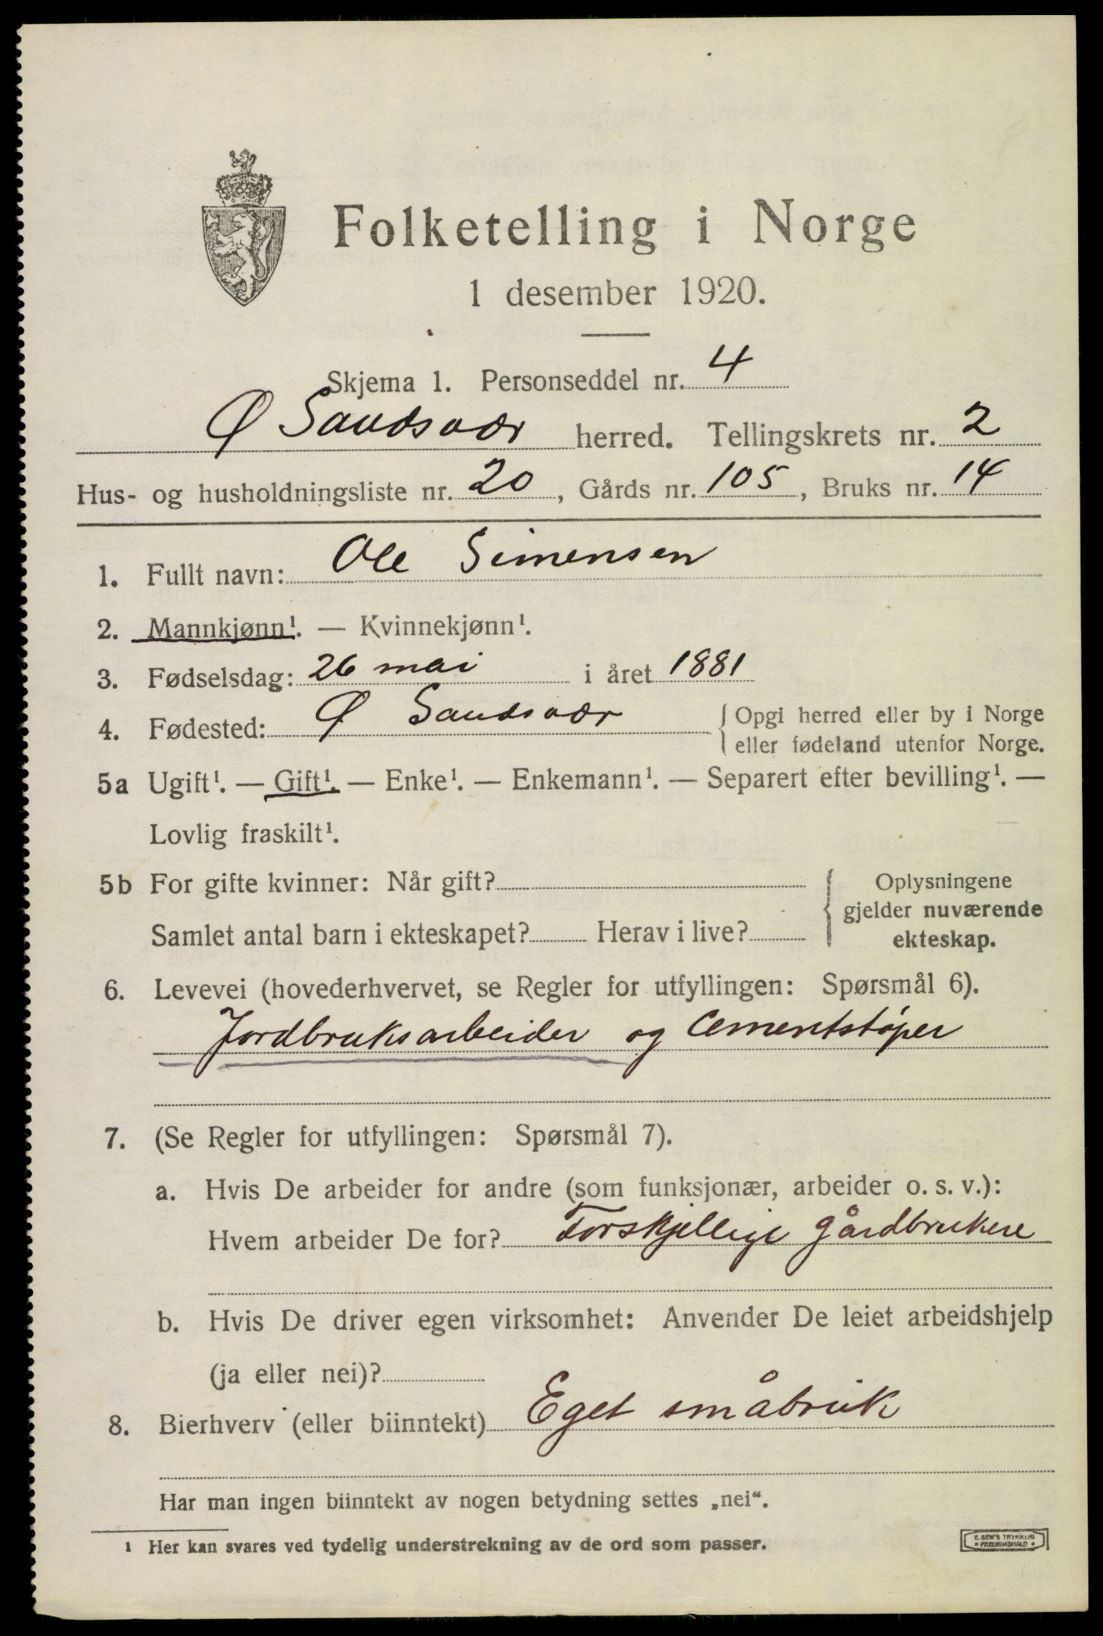 Folketelling i Norge
1 desember 1920.
Skjema 1. Personseddel nr. 4
Ø Sandsvær herred. Tellingskrets nr. 2
Hus- og husholdningsliste nr. 20, Gårds nr. 105, Bruks nr. 14
1. Fullt navn: Ole Simensen
2. Mannkjønn¹. — Kvinnekjønn¹.
3. Fødselsdag: 26 mai i året 1881
4. Fødested: Ø Sandsvær { Opgi herred eller by i Norge
eller fødeland utenfor Norge.
5a Ugift¹. — Gift¹. — Enke¹. — Enkemann¹. — Separert efter bevilling¹. —
Lovlig fraskilt¹.
5b For gifte kvinner: Når gift? { Oplysningene
gjelder nuværende
Samlet antal barn i ekteskapet? Herav i live? ekteskap.
6. Levevei (hovederhvervet, se Regler for utfyllingen: Spørsmål 6).
Jordbruksarbeider og Cementstøper
7. (Se Regler for utfyllingen: Spørsmål 7).
a. Hvis De arbeider for andre (som funksjonær, arbeider o. s. v.):
Hvem arbeider De for? Forskjellige gårdbrukere
b. Hvis De driver egen virksomhet: Anvender De leiet arbeidshjelp
(ja eller nei)?
8. Bierhverv (eller biinntekt) Eget småbruk
Har man ingen biinntekt av nogen betydning settes „nei“.
¹ Her kan svares ved tydelig understrekning av de ord som passer.
E. SEM'S TRYKKERI
• FREDRIKSHALD •